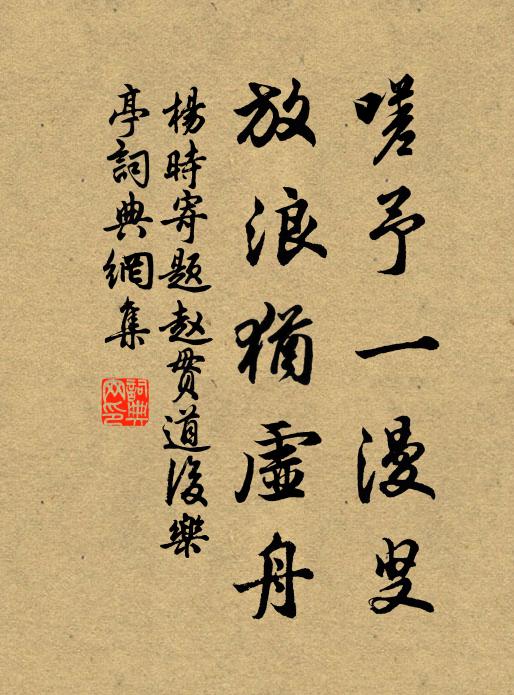 嗟予一漫叟
放浪猶虛舟
楊時寄題赵贯道後樂
亭詞典網集
詞典
网印